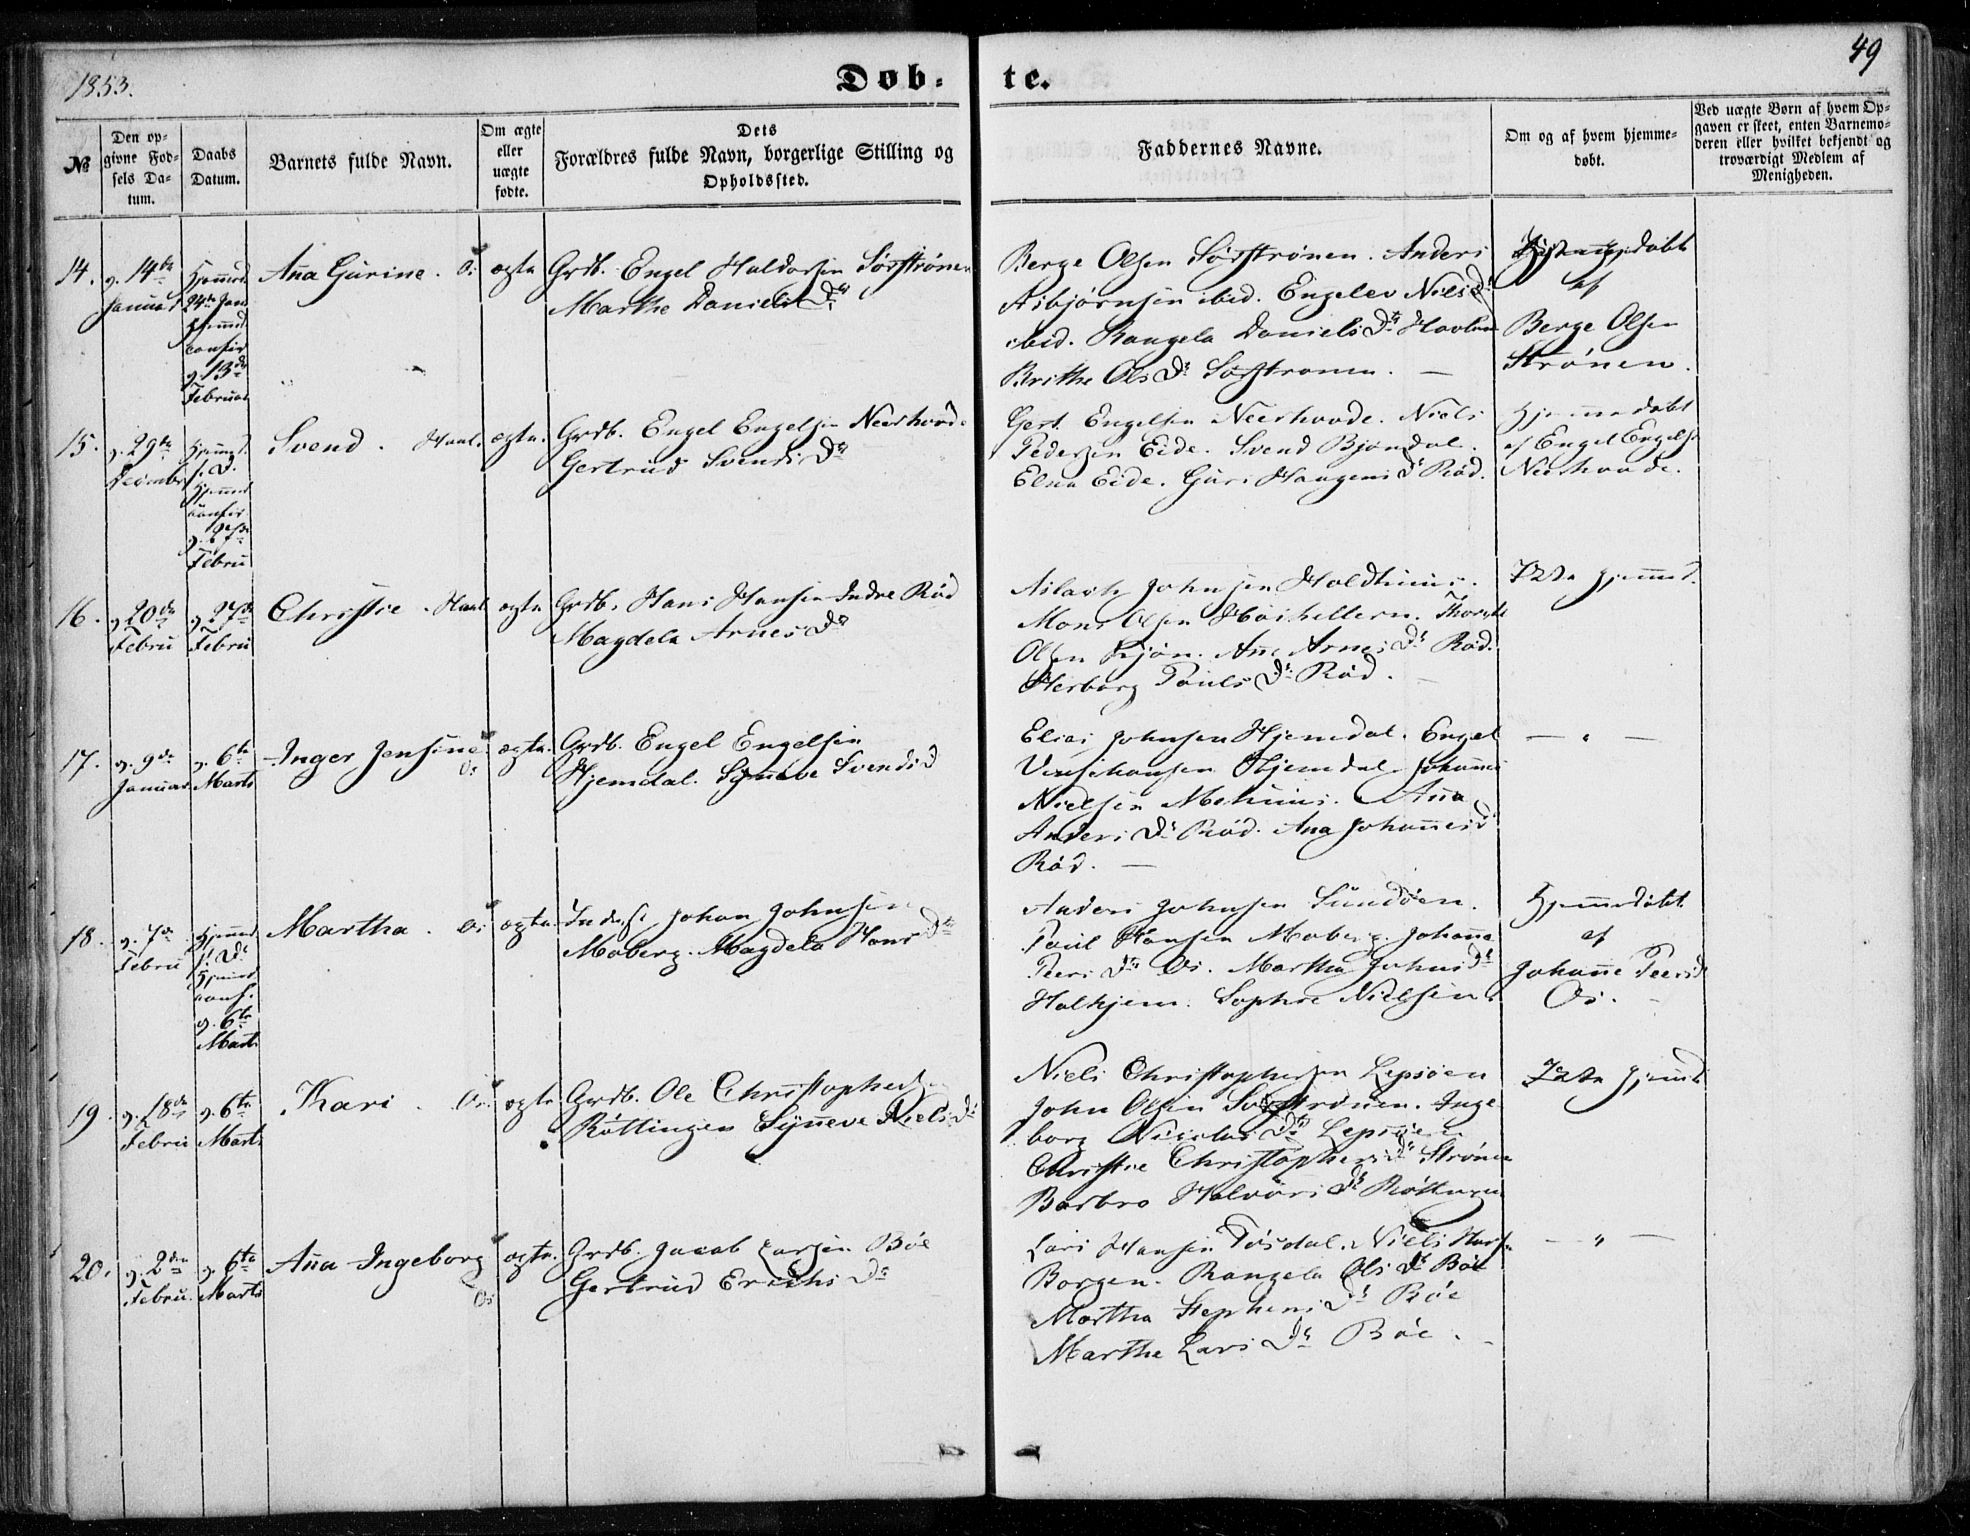 1853.
Døb-
te.
49
№
Den op-
givne Fød-
sels Da-
tum.
Daabs
Datum.
Barnets fulde Navn.
Om ægte
eller
uægte
fødte.
Dets
Forældres fulde Navn, borgerlige Stilling og
Opholdssted.
Faddernes Navne.
Om og af hvem hjemme-
døbt.
Ved uægte Børn af hvem Op-
gaven er skeet, enten Barnemo-
deren eller hvilket bekjendt og
troværdigt Medlem af
Menigheden.
14.
14de
Januar
Hjemmed.
24de Jan
Hjemmed
confir
13de
Februar
Anna Gurine. Os
ægte
Grdb. Engel Haldorsen Sørstrønen
Marthe Daniels Dr
Berge Olsen Sørstrønen. Anders
Asbjørnsen ibid. Engelev Niels Dr
ibid. Rangela Daniels Dr
Brithe Ols Dr Sørstronen.
Hjemmedøbt
af
Berge Olsen
Strønen.
15.
29de
Decembr
Hjemmed.
f. D.
Hjemmed
confir
27de
Februar
Svend.
ægte.
Grdb. Engel Engelsen
Gertrud Svends Dr
Engelsen Niels
Pedersen Eide. Svend Bjøndal.
Elna Eide. Guri Haagens Dr Rød.
Hjemmedøbt
af Engel Engels.
16.
20de
Febru
27de
Febru
Christie.
ægte
Grdb. Hans Hansen Indre Rød
Magdela Arnes Dr
Aslach Johnsen Holdhuus.
Mons Olsen
Olsen Anne Arnes Dr Rød.
Herborg Pouls Dr Rød.
Ikke hjemmed.
17.
9de
Januar
6te
Marts
Inger Jensine
Os
ægte.
Grdb. Engel Engelsen
Hjemdal. Synneve Svends D
Elias Johnsen Hjemdal. Engel
Hjemdal. Johannes
Nielsen Mohuus. Anna
Anders Dr Rød. Ana Johannes D
Rød.
— " —
18.
7de
Febru
Hjemmed
f. D.
Hjemmed
conf.
6te
Marts
Martha. Os
ægte
Inderst Johan Johnsen
Moberg. Magdela Hans Dr
Anders Johnsen Sundøen.
Poul Hansen Moberg. Johanne
Peers Dr Os. Martha Johns Dr
Halhjem. Sophie Nielsen.
Hjemmedøbt
af
Johanne Peers D
Os.
19.
18de
Febru
6te
Marts
Kari. Os
ægte
Grdb. Ole Christophersen
Røttingen Synneve Niels Dr
Niels Christophersen Lepsøen
John Olsen Sørstrønen. Inge-
borg Nicolai Dr Lepsøen
Christie Christophers Dr Strønen
Barbro Halvors Dr Røttingen
Ikke hjemmed
20.
2den
Febru.
6te
Marts
Anna Ingeborg
Os
ægte.
Grdb. Jacob Larsen Bøe
Gertrud Erichs Dr
Lars Hansen Tøsdal. Niels Hansen
Borgen. Rangela Ols Dr Bøe
Martha Stephens Dr Bøe
Marthe Lars Dr Bøe.
— " —